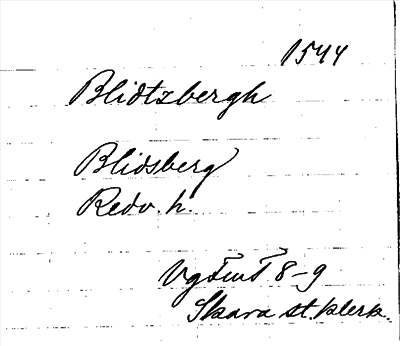 1544
Blidtzbergh
Blidsberg
Redv. h.
Vg Tiut 8-9
Skara st. klerk.